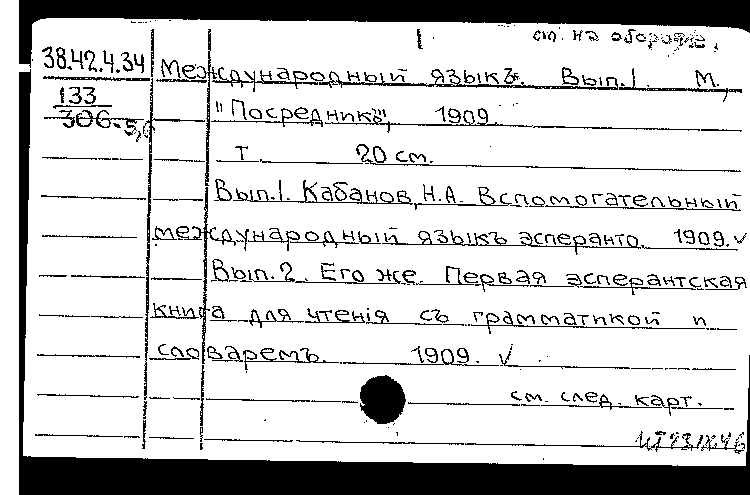 см. на обороте.
38.42.4.34 Международный языкъ. Вып.1. М.,
133
306-5,6
"Посредникъ", 1909.
т 20 см.
Вып.1. Кабанов, Н.А. Вспомогательный
международный языкъ эсперанто. 1909. ✓
Вып.2. Его же. Первая эсперантская
книга для чтенія съ грамматикой и
словаремъ. 1909. ✓
см. след. карт.